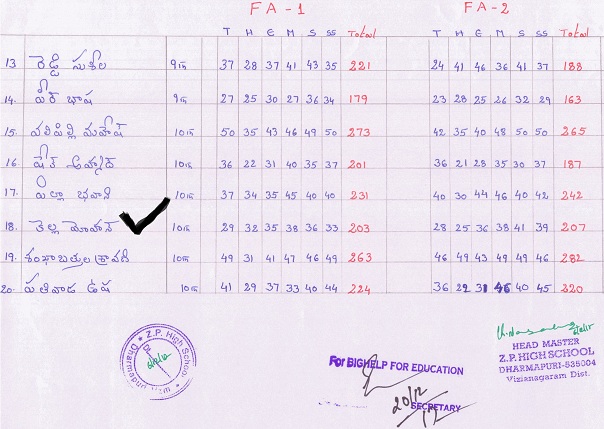 FA-1 FA-2
T H E M S SS Total T H E M S SS Total
13 రెడ్డి సుశీల 9th 37 28 37 41 43 35 221 24 41 46 36 41 37 188
14. పీర్ భాష 9th 27 25 30 27 36 34 179 23 28 25 26 32 29 163
15. మహేష్ 10th 50 35 43 46 49 50 273 42 35 40 48 50 50 265
16 షేక్ 10th 36 22 31 40 35 37 201 36 21 28 35 30 37 187
17. పిల్లా భవాని 10th 37 34 35 45 40 40 231 40 30 44 46 40 42 242
18. తెల్ల మోహన్ 10th 29 32 35 38 36 33 203 28 25 36 38 41 39 207
19. శ్రావణి 10th 49 31 41 47 46 49 263 46 49 43 49 49 46 282
20. పతివాడ ఉష 10th 41 29 37 33 40 44 224 36 22 31 46 40 45 220
Z.P. High School
HEAD MASTER
Z.P.HIGH SCHOOL
DHARMAPURI-535004
Vizianagaram Dist.
For BIGHELP FOR EDUCATION
20/12/12
SECRETARY